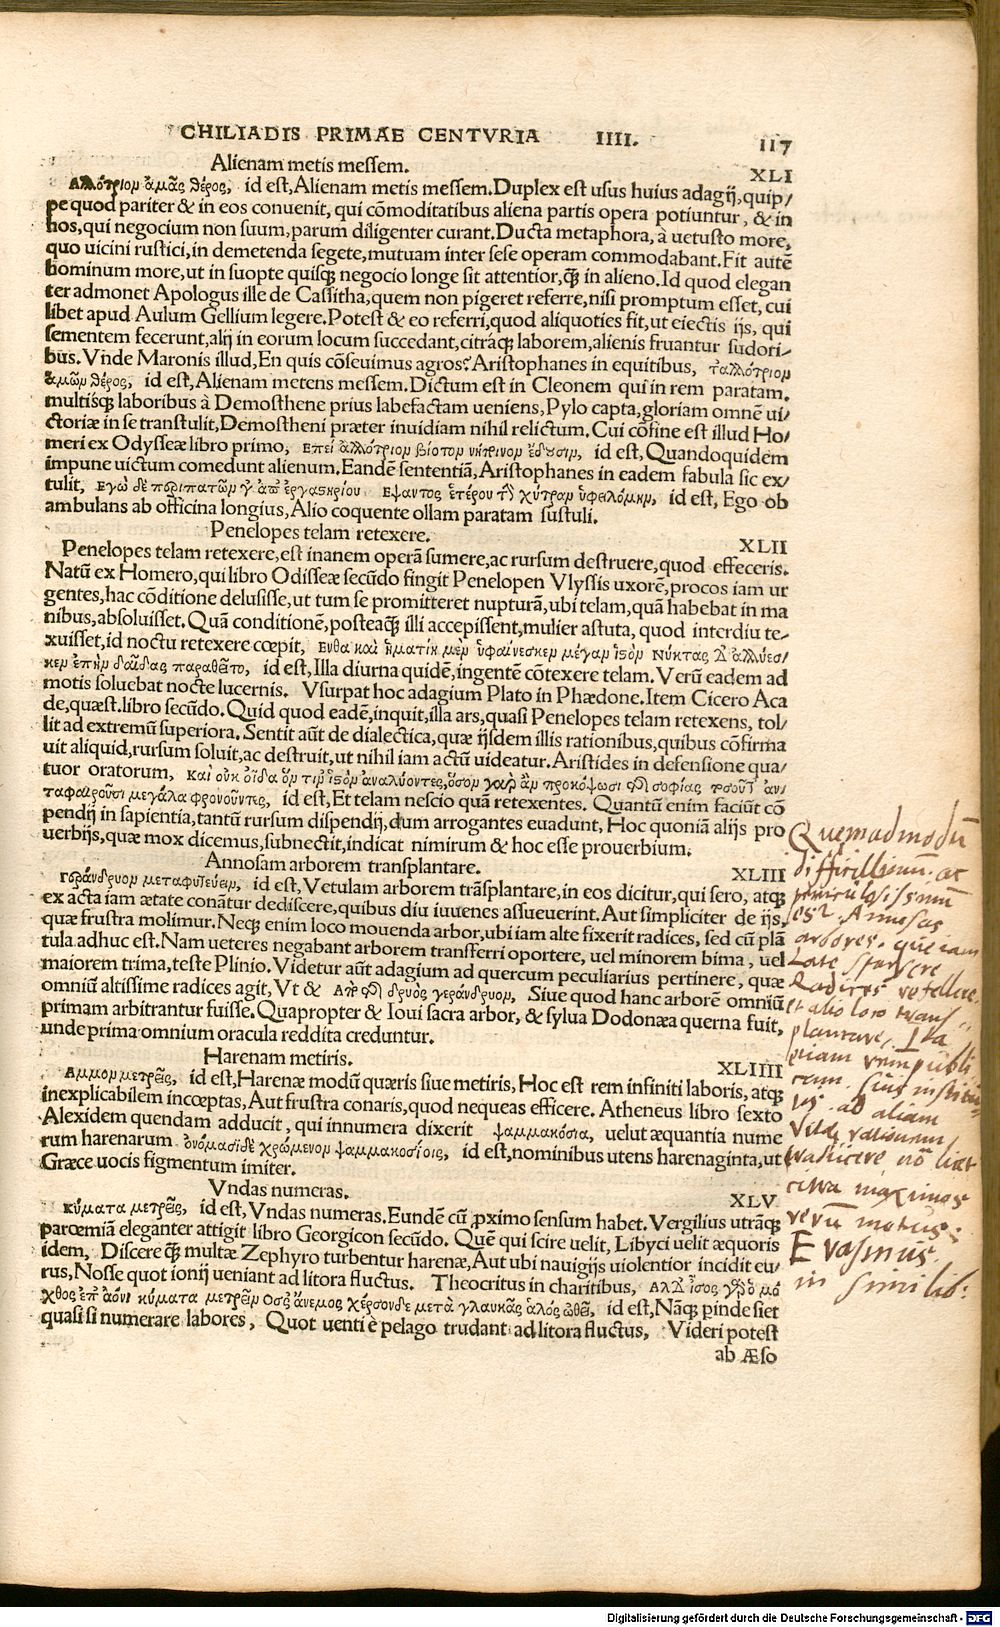 CHILIADIS PRIMAE CENTVRIA IIII. 117
Alienam metis messem. XLI
Ἀλλότριον ἀμᾷς θέρος, id est, Alienam metis messem. Duplex est usus huius adagij, quip/
pe quod pariter & in eos conuenit, qui cõmoditatibus aliena partis opera potiuntur, & in
hos, qui negocium non suum, parum diligenter curant. Ducta metaphora, à uetusto more,
quo uicini rustici, in demetenda segete, mutuam inter sese operam commodabant. Fit autẽ
hominum more, ut in suopte quisq; negocio longe sit attentior, q̃ in alieno. Id quod elegan
ter admonet Apologus ille de Cassitha, quem non pigeret referre, nisi promptum esset, cui
libet apud Aulum Gellium legere. Potest & eo referri, quod aliquoties fit, ut eiectis ijs, qui
sementem fecerunt, alij in eorum locum succedant, citráq; laborem, alienis fruantur sudori-
bus. Vnde Maronis illud, En quis cõseuimus agros? Aristophanes in equitibus, τἀλλότριον
ἀμῶν θέρος, id est, Alienam metens messem. Dictum est in Cleonem qui in rem paratam,
multisq; laboribus à Demosthene prius labefactam ueniens, Pylo capta, gloriam omnẽ ui/
ctoriæ in se transtulit, Demostheni præter inuidiam nihil relictum. Cui cõfine est illud Ho/
meri ex Odysseæ libro primo, Ἐπεὶ ἀλλότριον βίοτον νήποινον ἔδουσιν, id est, Quandoquidem
impune uictum comedunt alienum. Eandẽ sententiã, Aristophanes in eadem fabula sic ex/
tulit, Εγὼ δὲ περιπατῶν γ᾽ ἀπ᾽ ἐργαστηρίου Εψοντος ἑτέρου τὴν χύτραν ὑφειλόμην, id est, Ego ob
ambulans ab officina longius, Alio coquente ollam paratam sustuli.
Penelopes telam retexere. XLII
Penelopes telam retexere, est inanem operã sumere, ac rursum destruere, quod effeceris.
Natũ ex Homero, qui libro Odisseæ secũdo fingit Penelopen Vlyssis uxorẽ, procos iam ur
gentes, hac cõditione delusisse, ut tum se promitteret nupturã, ubi telam, quã habebat in ma
nibus, absoluisset. Quã conditionẽ, posteaq̃ illi accepissent, mulier astuta, quod interdiu te-
xuisset, id noctu retexere cœpit, Ενθα καὶ ἠματίη μὲν ὑφαίνεσκεν μέγαν ἱστὸν Νύκτας δ᾽ ἀλλύεσ/
κεν ἐπὴν δαΐδας παραθεῖτο, id est, Illa diurna quidẽ, ingentẽ cõtexere telam. Verũ eadem ad
motis soluebat nocte lucernis. Vsurpat hoc adagium Plato in Phædone. Item Cicero Aca
de, quæst. libro secũdo. Quid quod eadẽ, inquit, illa ars, quasi Penelopes telam retexens, tol/
lit ad extremũ superiora. Sentit aũt de dialectica, quæ ijsdem illis rationibus, quibus cõfirma
uit aliquid, rursum soluit, ac destruit, ut nihil iam actũ uideatur. Aristides in defensione qua/
tuor oratorum, καὶ οὐκ οἶδα ὅν τιν᾽ ἱστὸν ἀναλύοντες, ὅσον γὰρ ἂν προκόψωσι τῆς σοφίας τοσοῦτ᾽ ἀν/
ταφαιροῦσι μεγάλα φρονοῦντες, id est, Et telam nescio quã retexentes. Quantũ enim faciũt cõ
pendij in sapientia, tantũ rursum dispendij, dum arrogantes euadunt, Hoc quoniã alijs pro
uerbijs, quæ mox dicemus, subnectit, indicat nimirum & hoc esse prouerbium.
Annosam arborem transplantare. XLIII
Γεράνδρυον μεταφυτεύειν, id est, Vetulam arborem trãsplantare, in eos dicitur, qui sero, atq;
ex acta iam ætate conãtur dediscere, quibus diu iuuenes assueuerint. Aut simpliciter de ijs,
quæ frustra molimur. Neq; enim loco mouenda arbor, ubi iam alte fixerit radices, sed cũ plã
tula adhuc est. Nam ueteres negabant arborem transferri oportere, uel minorem bima, uel
maiorem trima, teste Plinio. Videtur aũt adagium ad quercum peculiarius pertinere, quæ
omniũ altissime radices agit, Vt & Απὸ τῆς δρυὸς γεράνδρυον, Siue quod hanc arborẽ omniũ
primam arbitrantur fuisse. Quapropter & Ioui sacra arbor, & sylua Dodonæa querna fuit,
unde prima omnium oracula reddita creduntur.
Harenam metiris. XLIIII
Αμμον μετρεῖς, id est, Harenæ modũ quæris siue metiris, Hoc est rem infiniti laboris, atq;
inexplicabilem incœptas, Aut frustra conaris, quod nequeas efficere. Atheneus libro sexto
Alexidem quendam adducit, qui innumera dixerit ψαμμακόσια, uelut æquantia nume
rum harenarum ὀνόμασι δὲ χρώμενον ψαμμακοσίοις, id est, nominibus utens harenaginta, ut
Græce uocis figmentum imiter.
Vndas numeras. XLV
κύματα μετρεῖς, id est, Vndas numeras. Eundẽ cũ proximo sensum habet. Vergilius utráq;
parœmiã eleganter attigit libro Georgicon secũdo. Quẽ qui scire uelit, Libyci uelit æquoris
idem, Discere q̃ multæ Zephyro turbentur harenæ, Aut ubi nauigijs uiolentior incidit eu/
rus, Nosse quot ionij ueniant ad litora fluctus. Theocritus in charitibus, Αλλ᾽ ἶσος γὰρ ὁ μό
χθος ἐπ᾽ ἀόνι κύματα μετρεῖν Οσσ᾽ ἄνεμος χέρσονδε μετὰ γλαυκᾶς ἁλός ὠθεῖ, id est, Nãq; perinde siet
quasi si numerare labores, Quot uenti è pelago trudant ad litora fluctus, Videri potest
ab Æso
Quemadmodũ
difficillimũ ac
periculosissimũ
est Annosas
arbores, que iam
Late sparsere
Radices refellere,
et alio loco trans=
plantare, Ita
quam rempubli
cam suis institu=
tis ad aliam
Vitæ rationem
traducere nõ licet
citra maximos
rerũ motus.
Erasmus
in similib:
Digitalisierung gefördert durch die Deutsche Forschungsgemeinschaft - DFG